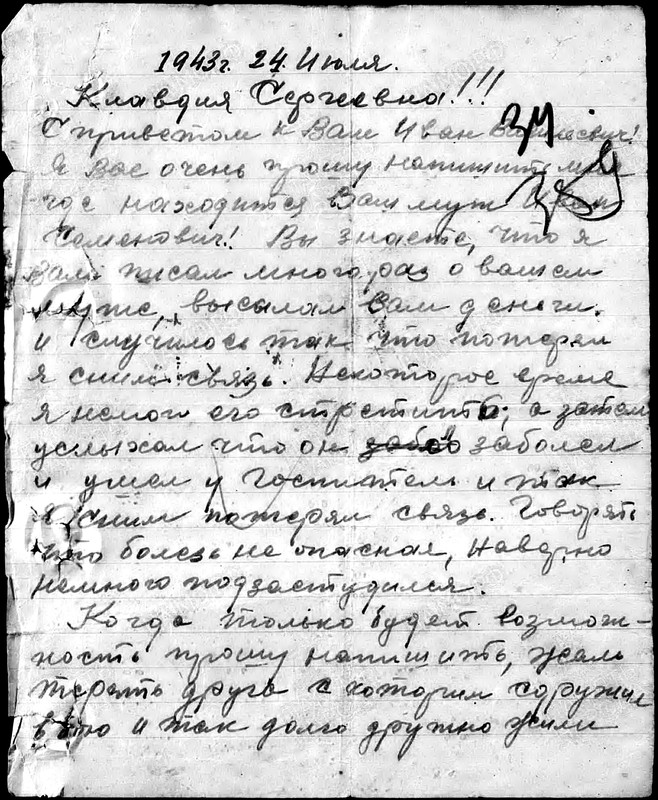 1943г. 24 Июля.
Клавдия Сергеевна!!!
С приветом к Вам Иван Васильевич!
Я Вас очень прошу напишите мне
где находится Ваш муж Иван
Семенович! Вы знаете, что я
Вам писал много раз о вашем
муже, высылал Вам деньги.
и случилось так что потерял
я сним связь. Некоторое время
я немог его стретить, а затем
услыхал что он заболел
и ушел у Госпиталь и так
я сним потерял связь. Говорять
что болезь не опасная, наверно
немного подзастудился.
Когда только будет возмож-
ность прошу напишить, жаль
терять друга с которим
и так долго дружно жили